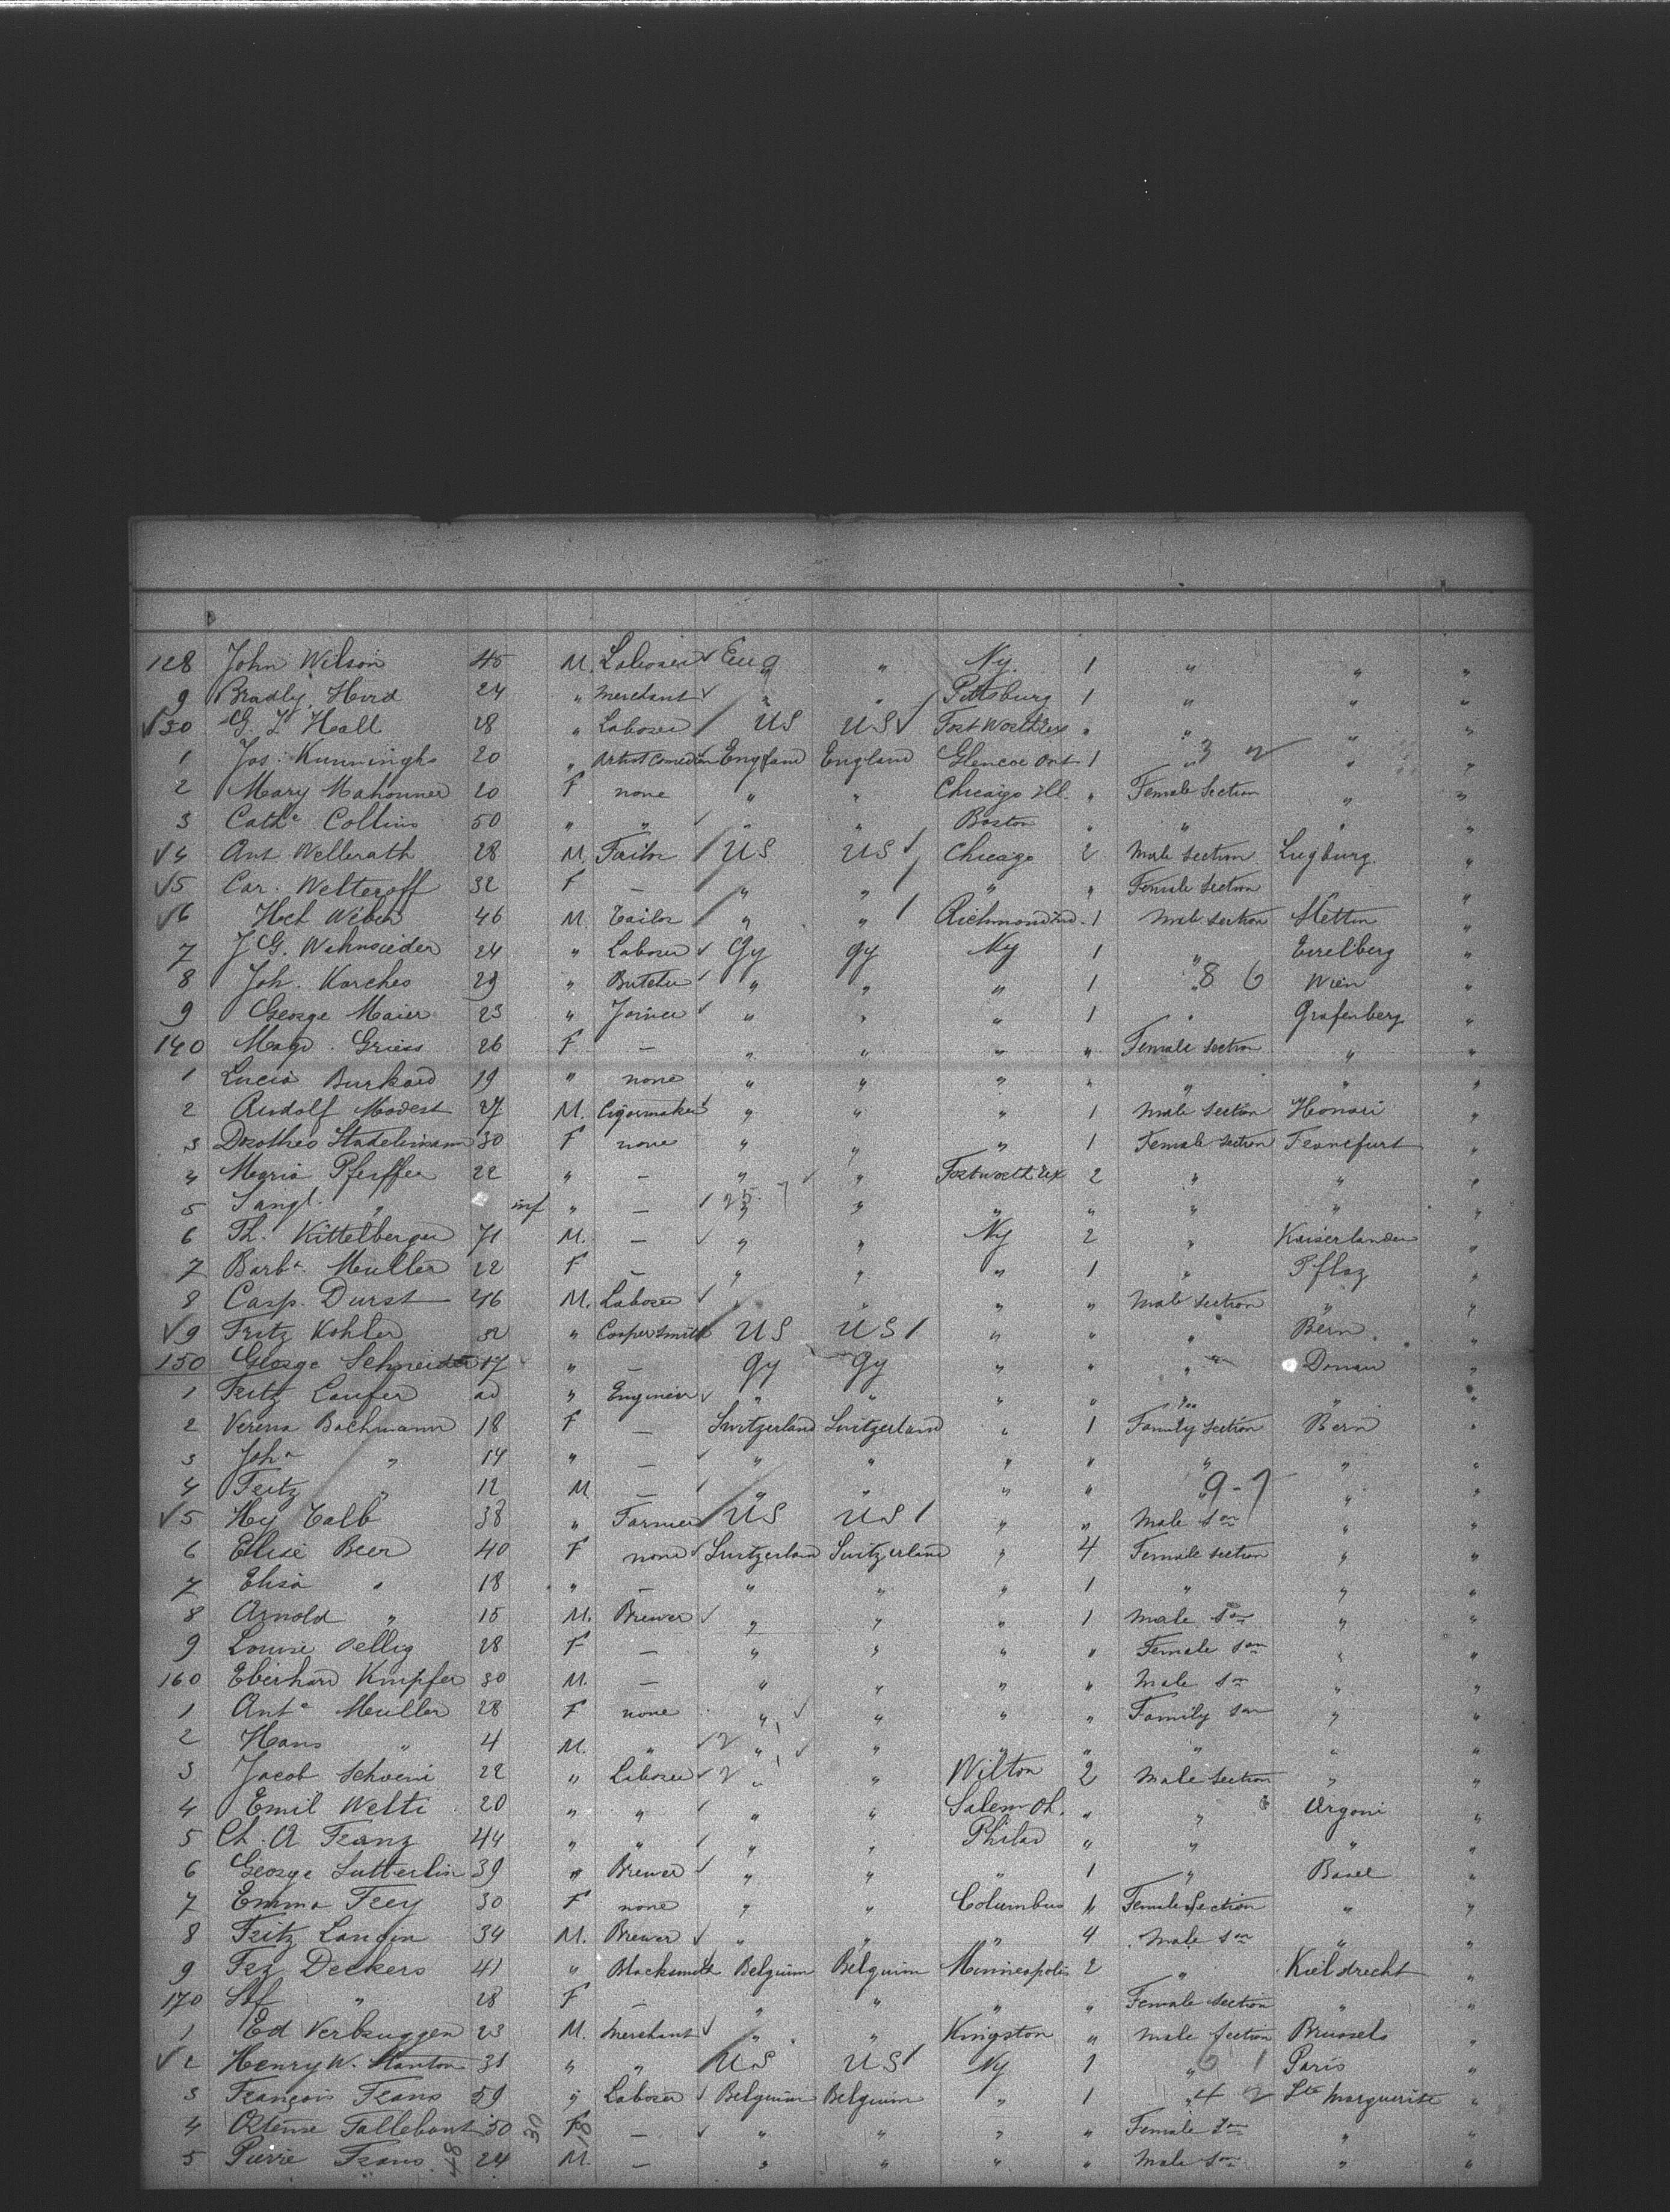 128 John Wilson 45 M. Laborer Eng " Ny. 1 " " "
9 Bradly Hurd 24 " Merchant " " Pittsburg 1 " " "
30 G. L. Hall 28 " Laborer US US Fort Worth Tex " " " "
1 Jos. Kunninghs 20 " Artist Comedian England England Glencoe Ont 1 " 3 2 " "
2 Mary Mahonner 20 F none " " Chicaigo Ill. " Female Section " "
3 Cath. Collins 50 " " " " Boston " " " "
4 Ant Wellerath 28 M. Tailor US US Chicago 2 Male Section Lugburg "
5 Car. Welteroff 32 F — " " " " Female Section "
6 Weber 46 M Tailor " " Richmond Ind. 1 Male section Stettin "
7 J. G. 24 " Laborer Gy Gy Ny 1 " "
8 Joh. Karches 29 " Butcher " " " 1 " 8 6 Wien "
9 George Maier 23 " Joiner " " " 1 " Grafenberg "
140 Magd. Griess 26 F — " " " " Female Section " "
1 Lucia Burkard 19 " none " " " " " " "
2 Rudolf Modest 27 M. Cigarmaker " " " 1 Male Section "
3 Dorothea Stadelmann 30 F none " " " 1 Female Section Francfurt "
4 Maria Pfeiffer 22 " — " " Fort worth Tex 2 " " "
5 Sangl. " inf " — " " " " " " "
6 Th. Kittelberger 71 M. — " " Ny 2 " "
7 Barb.a Muller 22 F — " " " 1 " Pflaz "
8 Casp. Durst 46 M. Laborer " " " " Male Section " "
9 Fritz Kohler 32 " Coppersmith US US " " " Bern "
150 George Schneider 17 " — Gy Gy " " " Donau "
1 Fritz Laufer 20 " Engineer " " " " " " "
2 Verena Bachmann 18 F — Switzerland Switzerland " 1 Family Section Bern "
3 Joh.a " 14 " — " " " " " " "
4 Fritz " 12 M — " " " " " 9-7 " "
5 Hy Calb 38 " Farmer US US " " Male Son " "
6 Elise Beer 40 F none Switzerland Switzerland " 4 Female section " "
7 Elisa " 18 " — " " " 1 " " "
8 Arnold " 15 M. Brewer " " " 1 Male Son " "
9 Louise 28 F — " " " " Female Son " "
160 Eberhard Knipfer 30 M. — " " " " Male Son " "
1 Ant.e Muller 28 F none " " " " Family Son " "
2 Hans " 4 M. " " " " " " " "
3 Jacob Schoeni 22 " Laborer " " Wilton 2 Male section " "
4 Emil Welti 20 " " " " Salem Oh. " " Argoni "
5 Ch. A Franz 44 " " " " Philad " " " "
6 George Sutterlin 39 " Brewer " " " 1 " Basel "
7 Emma Frey 30 F none " " Columbus 1 Female Section " "
8 Fritz Langin 34 M. Brewer " " " 4 Male Son " "
9 Frz Deckers 41 " Blacksmith Belgium Belgium Minneapolis 2 " Kieldrecht "
170 " 28 F — " " " " Female Section " "
1 Ed Verbruggen 23 M. Merchant " " Kingston " Male Section Brussels "
2 Henry W. Stanton 31 " " US US Ny 1 " 6 1 Paris "
3 François Frans 59 " Laborer Belgium Belgium " 1 " 4 2 Ste Marguerite "
4 Ortense 50 30 F 18 — " " " " Female Son " "
5 Pierre Frans 48 24 M. — " " " " Male Son " "